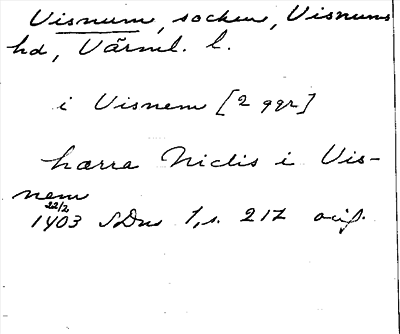 Visnum, socken, Visnums
hd, Värml. l.
i Visnem [2 ggr]
hærra Niclis i Vis-
nem
22/2
1403 SDns 1, s. 217 orig.